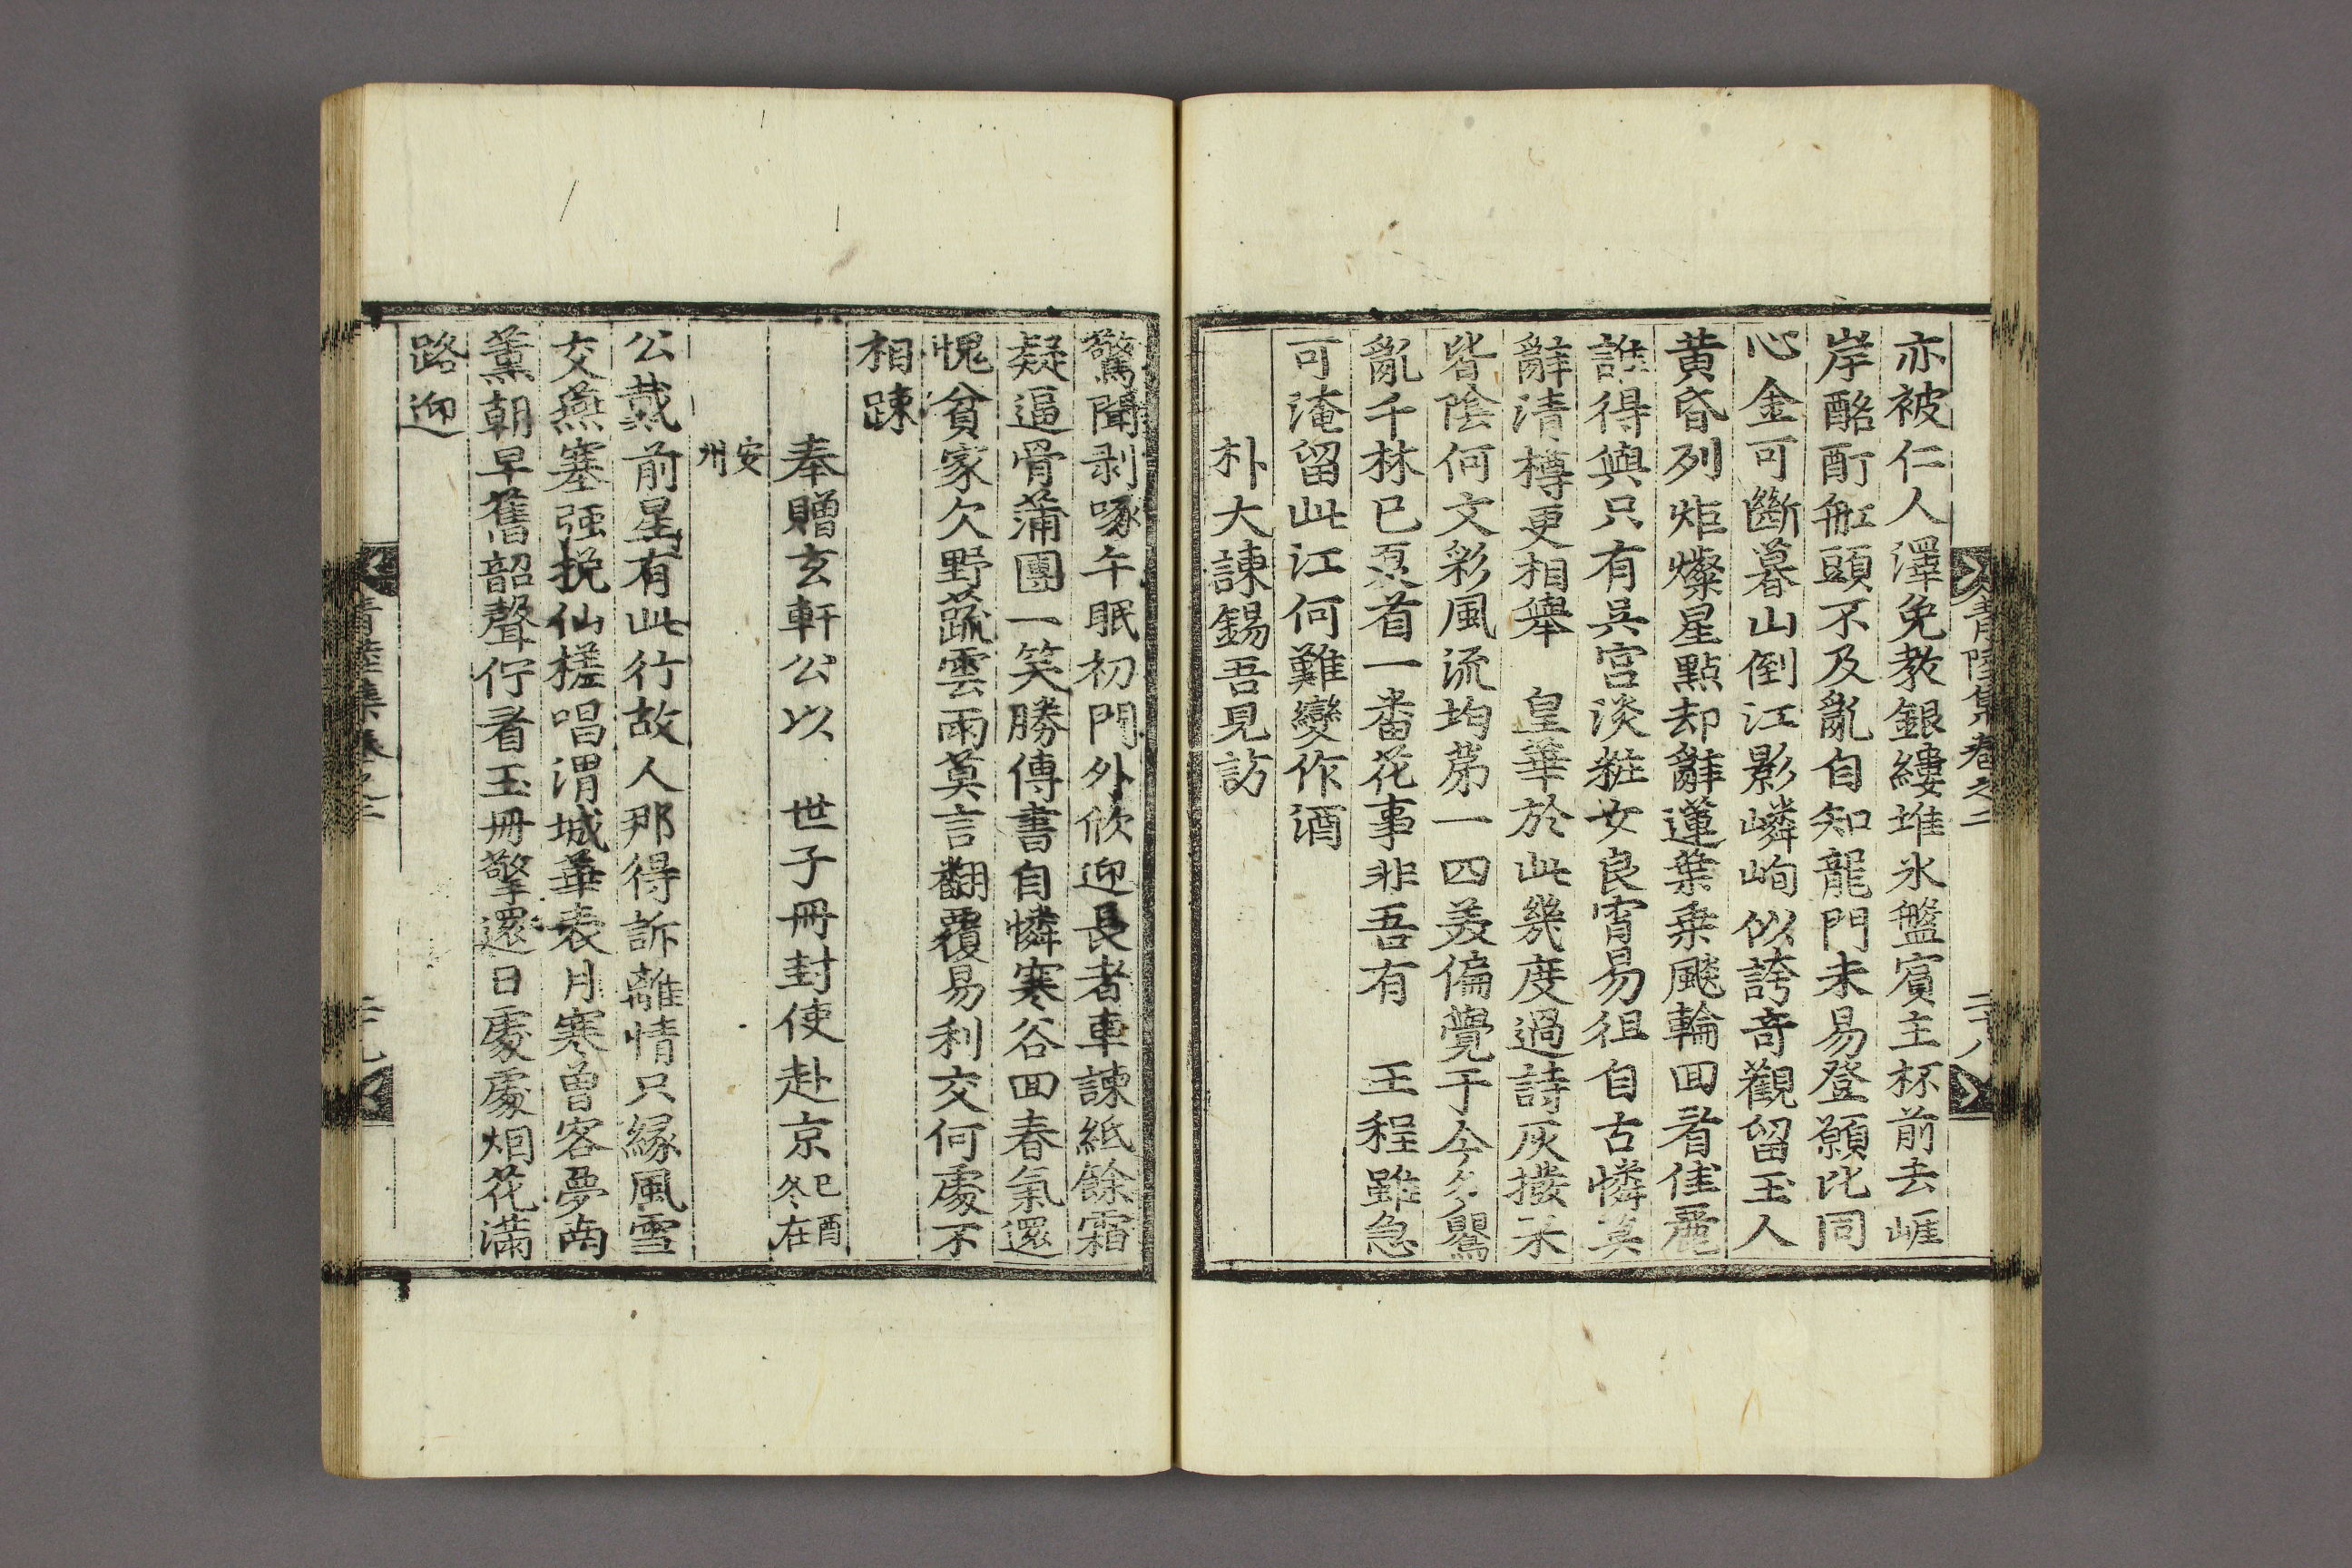 青陸集卷之二
二十八
亦被仁人澤免教銀縷堆氷盤賓主杯前去崕
岸酩酊舡頭不及亂自知龍門未易登顧比同
心金可斷暮山倒江影嶙峋似誇奇觀留玉人
黄昏列炬燦星點却辭蓮葉乗颷輪回看佳麗
誰得與只有呉宫淡粧女良宵易徂自古憐莫
辭清樽更相舉　皇華於此幾度過詩灰撥未
皆陰何文彩風流均苐一四羙偏覺于今多鸎
亂千林已裛首一番花事非吾有　王程雖急
可淹留此江何難變作酒
朴大諫錫吾見訪
驚聞剥啄午眠初門外欣迎長者車諫紙餘霜
疑逼骨蒲團一笑勝傳書自憐寒谷回春氣還
愧貧家欠野蔬雲雨莫言翻覆易利交何處不
相踈
奉贈玄軒公以　世子冊封使赴京己酉冬在
安州
公戴前星有此行故人那得訴離情只緣風雪
交燕塞强挽仙槎唱渭城華表月寒曾客夢南
薰朝早舊韶聲佇看玉冊擎還日處處烟花滿
路迎
青陸集卷之二
二十九